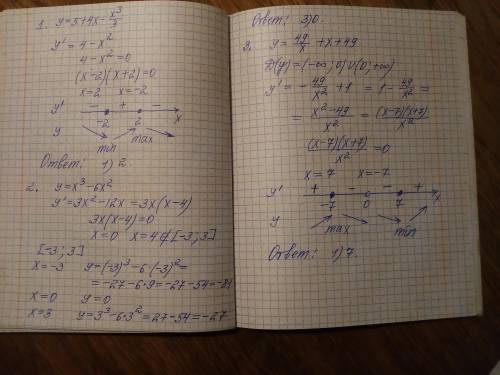 1. y=5+4x-x³/3
y'=4-x²
4-x²=0
(x-2)(x+2)=0
x=2 x=-2
y' - + -
-2 2 x
y min max
Ответ: 1) 2.
2. y=x³-6x²
y'=3x²-12x=3x(x-4)
3x(x-4)=0
x=0 x=4∉[-3;3]
[-3;3]
x=-3 y=(-3)³-6·(-3)²=
=-27-6·9=-27-54=-81
x=0 y=0
x=3 y=3³-6·3²=27-54=-27
Ответ: 3) 0.
3. y=49/x+x+49
D(y)=(-∞;0)∪(0;+∞)
y'=-49/x²+1=1-49/x²=
=(x²-49)/x²=(x-7)(x+7)/x²
(x-7)(x+7)/x²=0
x=7 x=-7
y' + - - +
-7 0 7 x
y max min
Ответ: 1) 7.